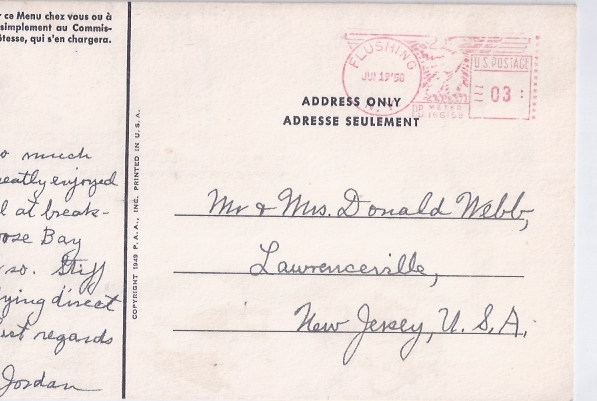 r ce Menu chez vous ou à
simplement au Commis-
ôtesse, qui s'en chargera.
o much
eatly enjoyed
l at break-
oose Bay
so. Stiff
ying direct
est regards
Jordan
COPYRIGHT 1949 P. A. A., INC. PRINTED IN U. S. A.
FLUSHING
19'50
N. Y.
U.S. POSTAGE
03
METER
ADDRESS ONLY
ADRESSE SEULEMENT
Mr & Mrs. Donald Webb,
Lawrenceville,
New Jersey, U.S.A.